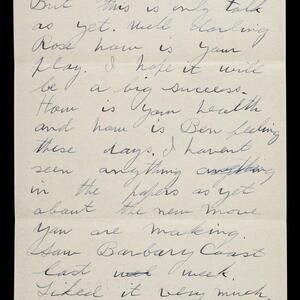 But this is only talk
as yet. Well darling
Rose how is your
play. I hope it will
be a big success.
How is your health
and how is Ben feeling
these days. I havent
seen anything anything
in the papers as yet
about the new move
you are making.
Saw Barbary Coast
last week.
Liked it very much.